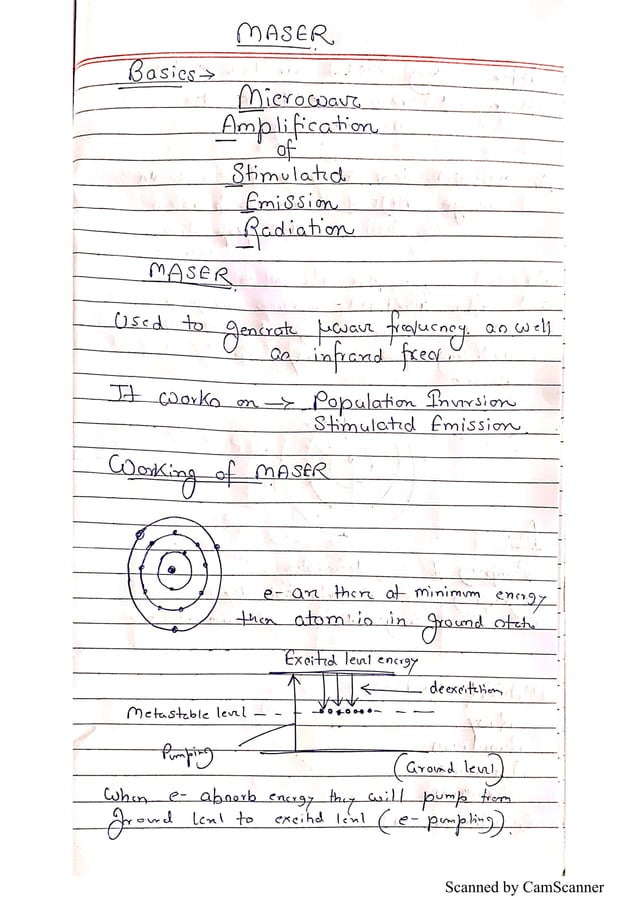 MASER
Basics→
Microwave
Amplification
of
Stimulated
Emission
Radiation
MASER
Used to generate μwave frequency. as well
as infrared freq.
It works on → Population Inversion
Stimulated Emission
Working of MASER
e- are there at minimum energy
then atom is in ground state
Excited level energy
deexcitation
Metastable level
Pumping
(Ground level)
When e- absorb energy they will pump from
ground level to excited level (e- pumpling).
Scanned by CamScanner